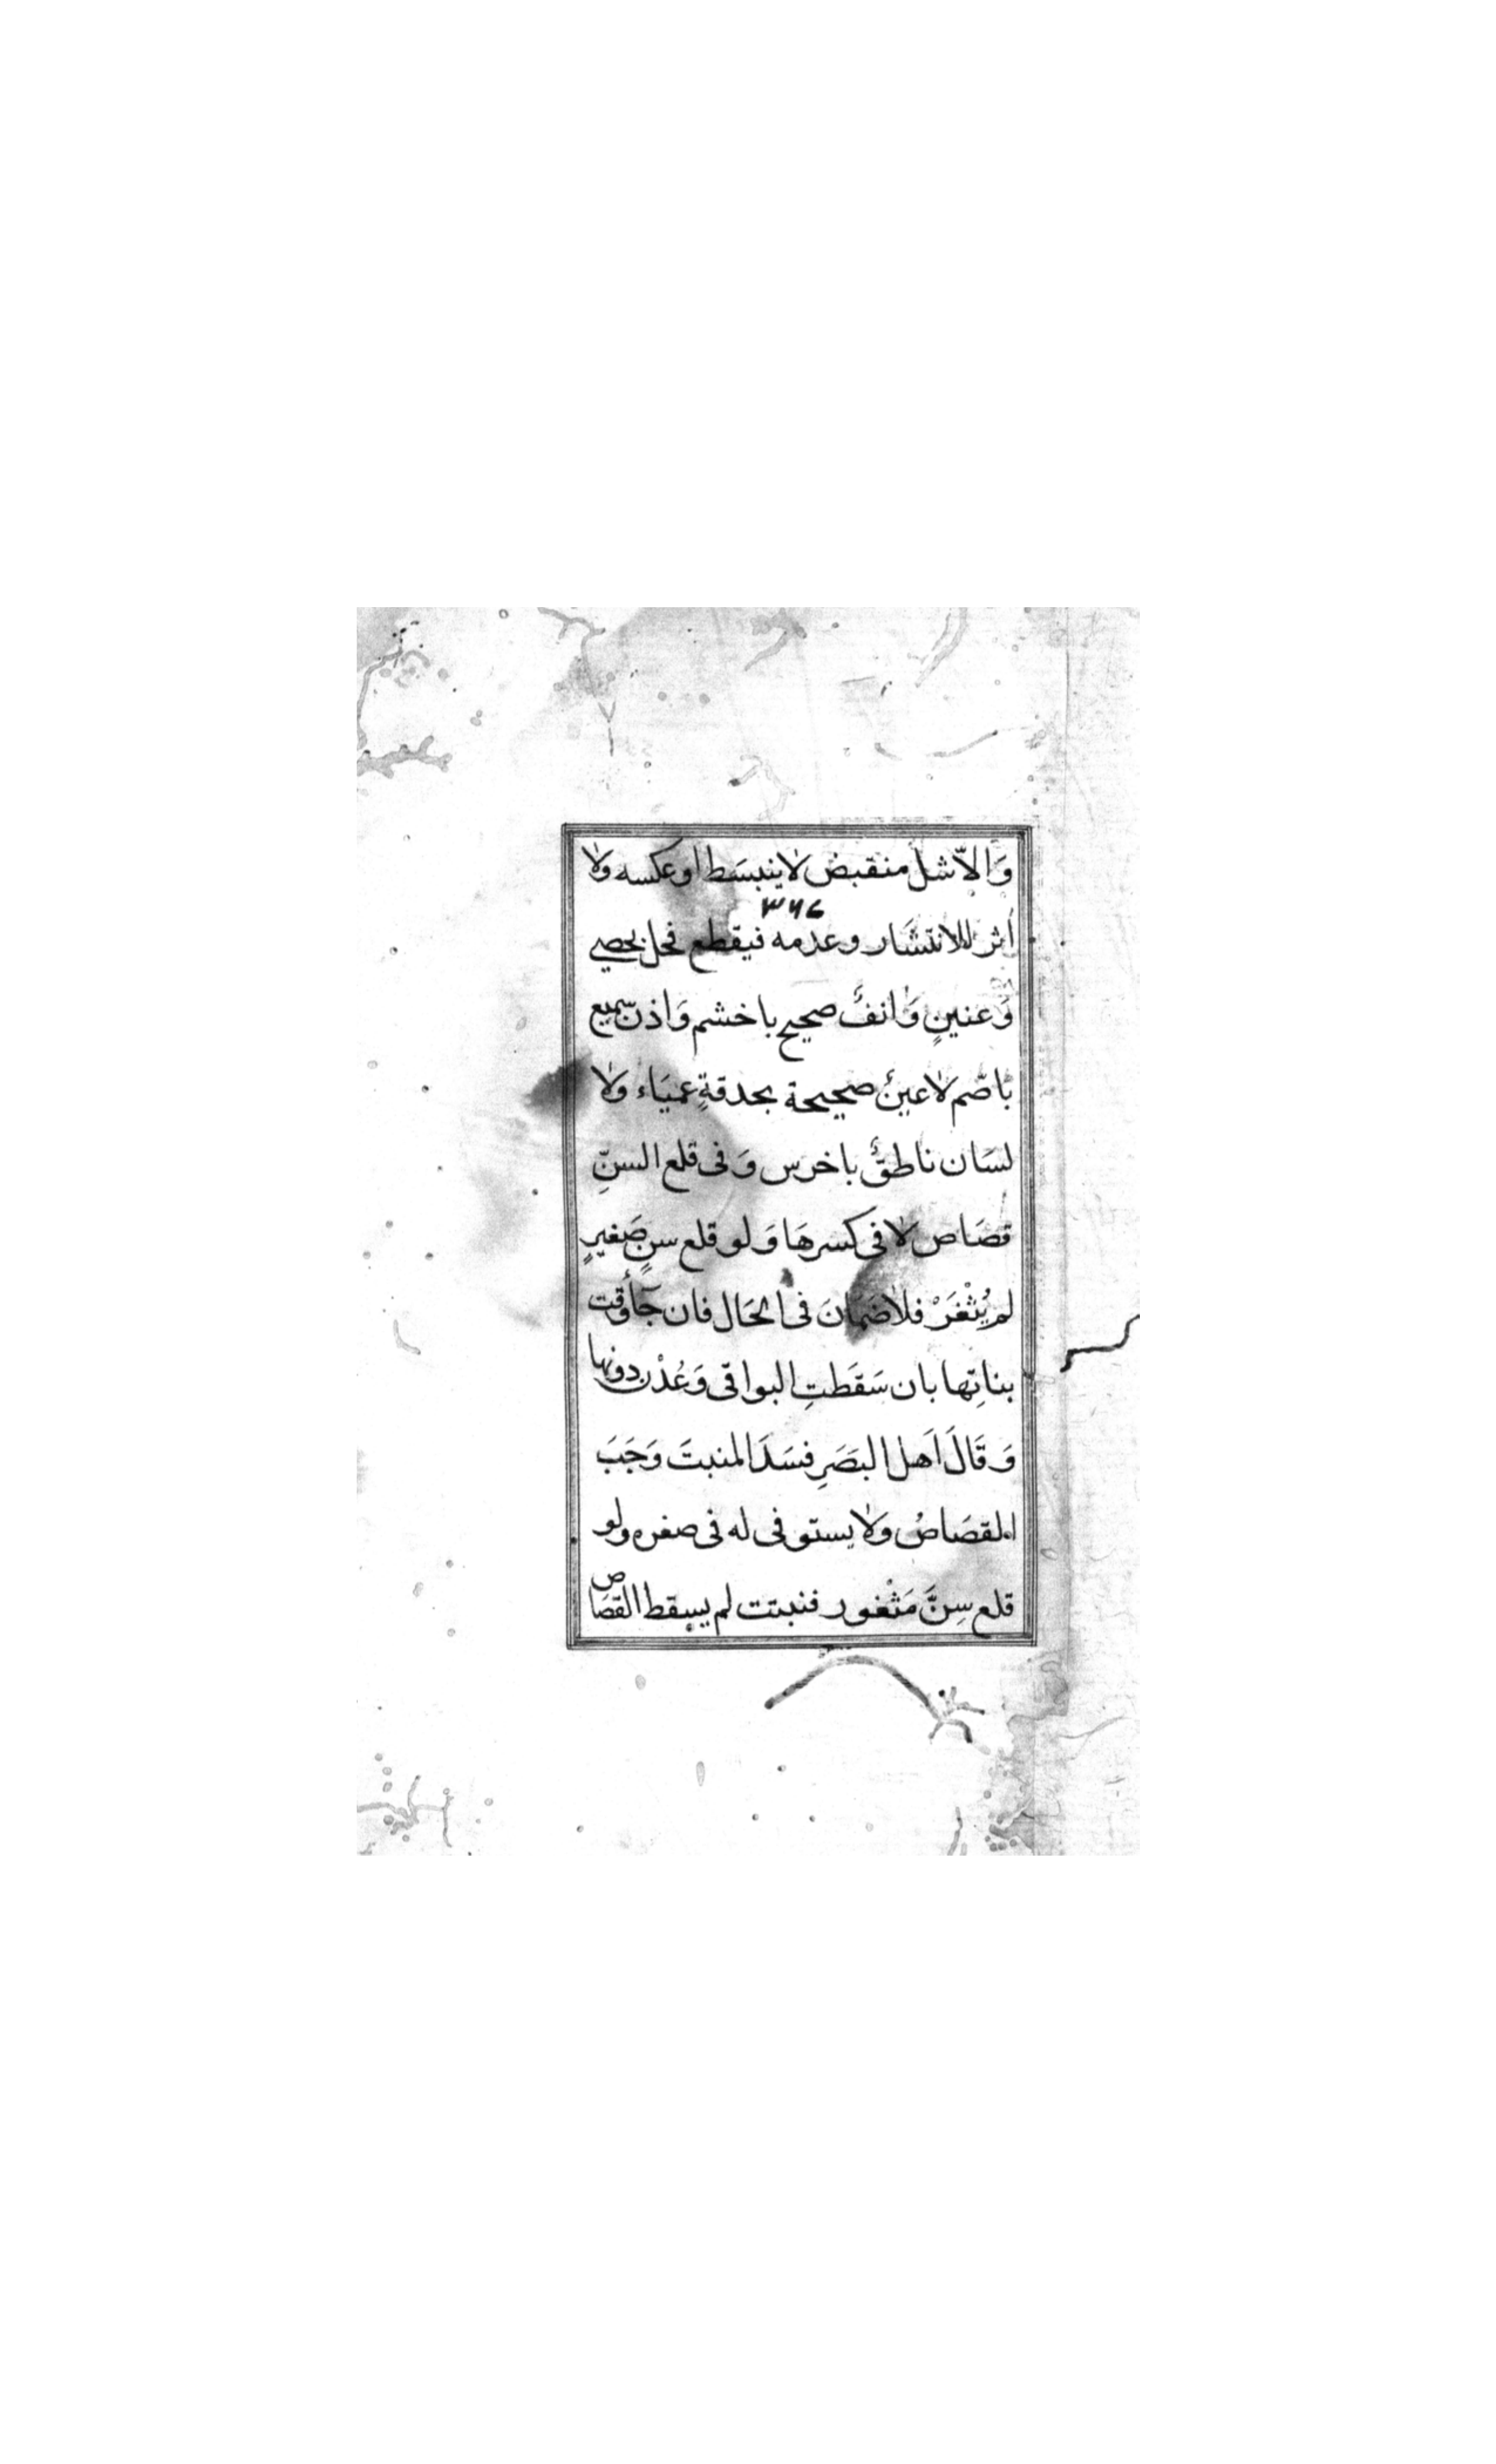 وَالاّشل منقبض لا ينبسَط او عكسه ولا
٣٧٤
أثر للانتشَار وعدمه فيقطع فحل بخصي
وَعنينٍ وَانفٌ صحيح باخشم وَاذن سميع
باصّم لا عينٌ صحيحة بحدقةٍ عميَاء ولا
لسَان ناطقٌ باخرس وَفى قلع السنِّ
قصَاص لا فى كسرهَا وَلو قلع سنٍ صَغيرٍ
لم يُثْغَرْ فلا ضمَانَ فى الحَال فان جَآ وقت
بناتِها بان سَقَطتِ البواقى وَعُدْن دونها
وَقَالَ اَهل البَصَرِ فسَدَ المنبتَ وَجَبَ
القصَاصُ وَلا يستوفى له فى صغره ولو
قلع سِنَّ مَثْغور فنبتت لم يسقط القصَاص